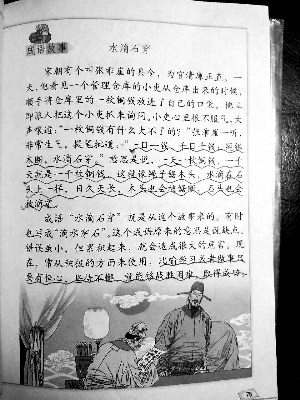 成语故事
水滴石穿
宋朝有个叫张乖崖的县令，为官清廉正直。一
天，他看见一个管理仓库的小吏从仓库出来的时候，
顺手将仓库里的一枚铜钱放进了自己的口袋。他立
即派人把这个小吏抓来审问。小吏心里很不服气，大
声嚷道：“一枚铜钱有什么大不了的？”张乖崖一听，
非常生气，提笔批道：“一日一钱，千日千钱；绳锯
木断，水滴石穿。”意思是说，一天一枚铜钱，一千
天就是一千枚铜钱。这就像绳子锯木头，水滴在石
头上一样，日久天长，木头也会被锯断，石头也会
被滴穿。
成语“水滴石穿”就是从这个故事来的。有时
也写成“滴水穿石”。这个成语原来的意思是说缺点、
错误虽小，但累积起来，就会造成很大的危害。现
在，常从积极的方面来使用，比喻学习或者做事只
要有恒心，坚持不懈，就能够战胜困难，取得成功。